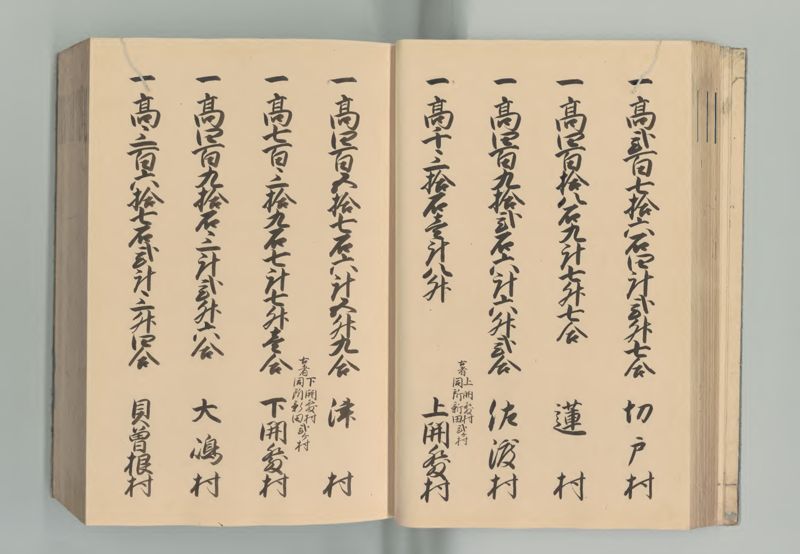 一高弐百七拾六石四斗弐升七合 切戸村
一高四百拾八石九斗七升七合 蓮村
一高四百九拾弐石六斗六升弐合 佐渡村
古者上開発村
同所新田弐ヶ村
一高千三拾石壱斗八升 上開発村
一高四百五拾七石六斗五升九合 津村
古者下開発村
同所新田弐ヶ村
一高七百三拾九石七斗七升壱合 下開発村
一高四百九拾石三斗弐升六合 大嶋村
一高三百六拾七石弐斗三升四合 貝曽根村